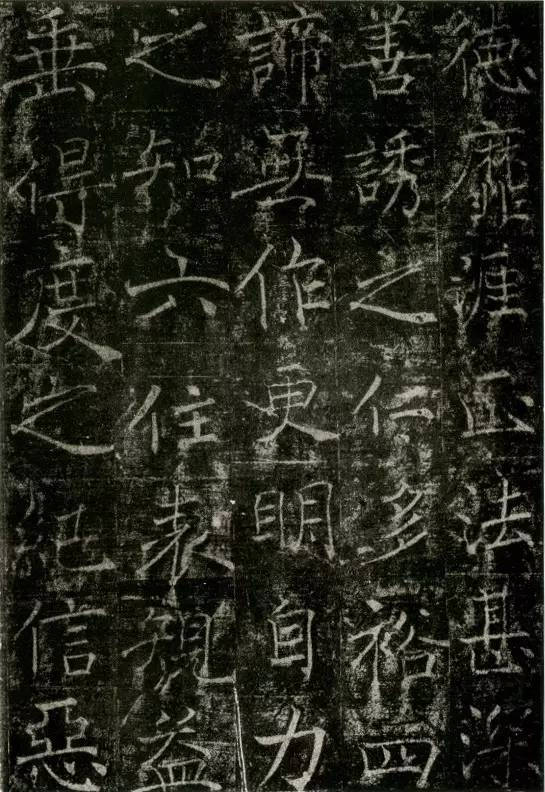 徳靡涯正法甚深
善誘之仁多裕四
諦無作更明自力
之知六住表規益
垂得度之紀信惡